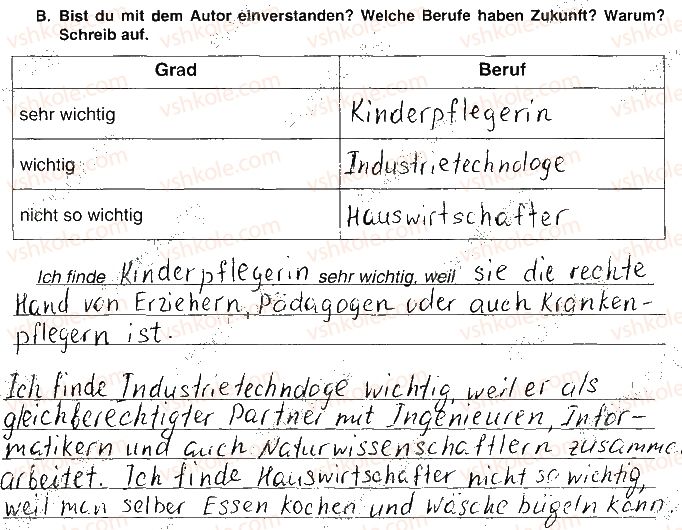 B. Bist du mit dem Autor einverstanden? Welche Berufe haben Zukunft? Warum?
Schreib auf.
Grad Beruf
sehr wichtig Kinderpflegerin
wichtig Industrietechnologe
nicht so wichtig Hauswirtschafter
Ich finde Kinderpflegerin sehr wichtig, weil sie die rechte
Hand von Erziehern, Pädagogen oder auch Kranken-
pflegern ist.
Ich finde Industrietechnologe wichtig, weil er als
gleichberechtigter Partner mit Ingenieuren, Infor-
matikern und auch Naturwissenschaftlern zusamme
arbeitet. Ich finde Hauswirtschafter nicht so wichtig,
weil man selber Essen kochen und Wäsche bügeln kann.